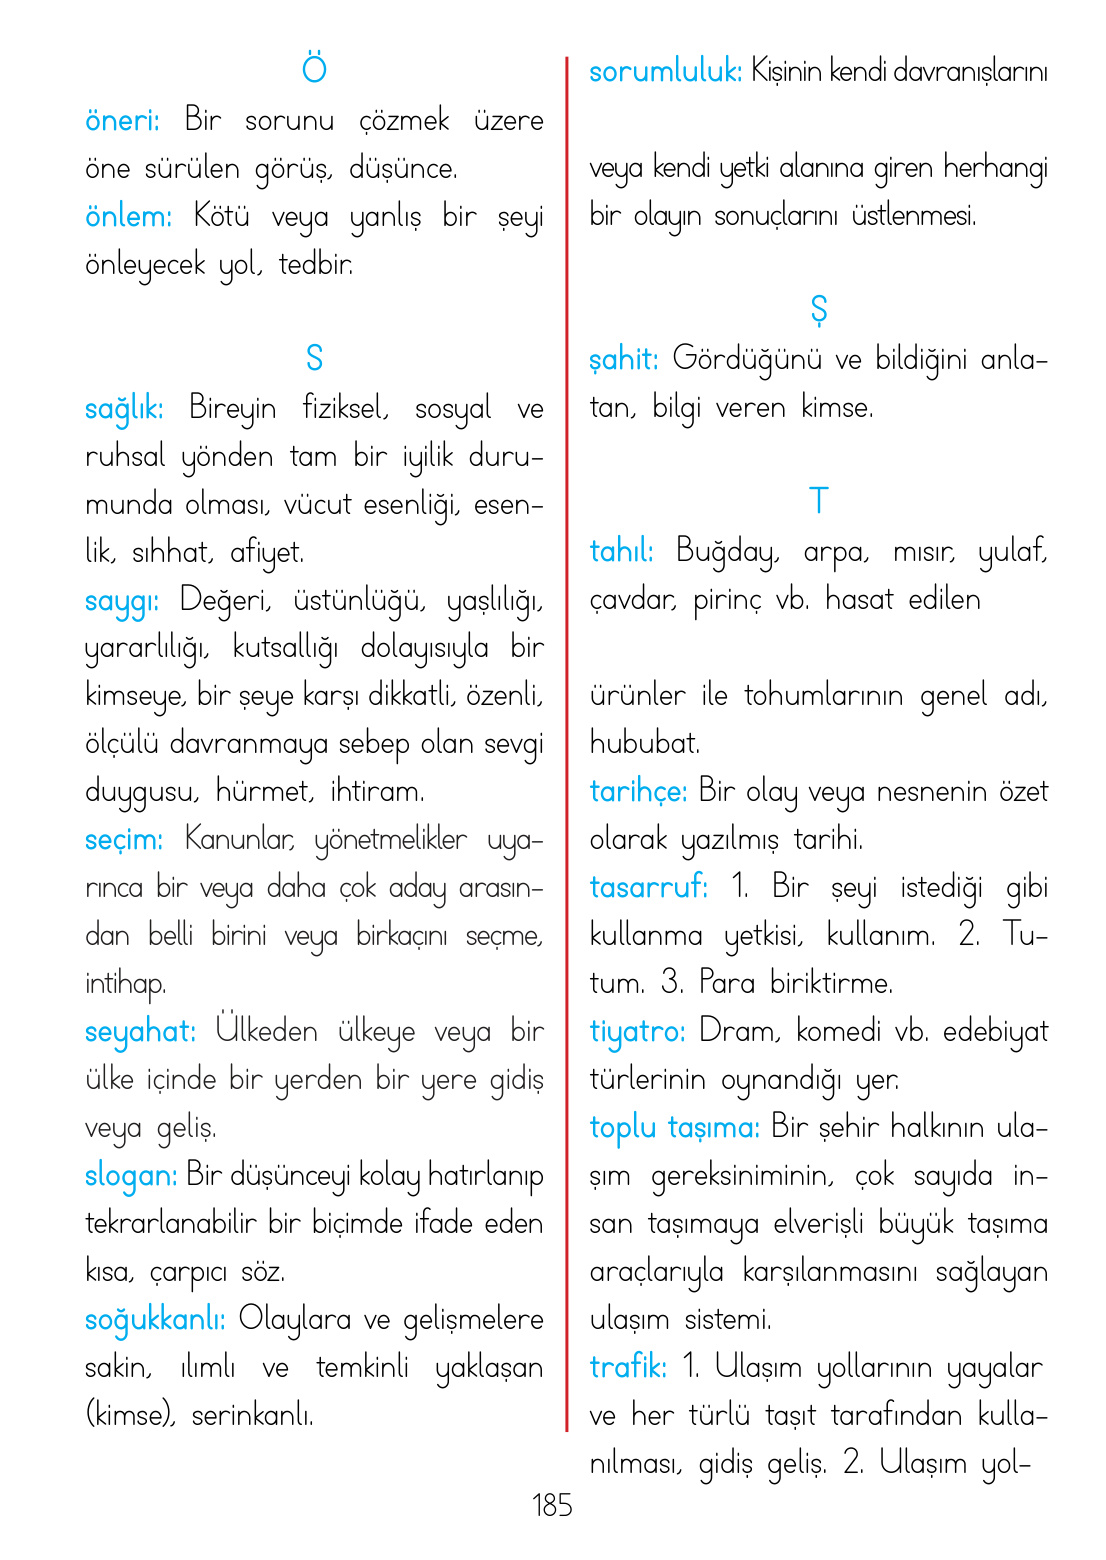 Ö
öneri: Bir sorunu çözmek üzere
öne sürülen görüş, düşünce.
önlem: Kötü veya yanlış bir şeyi
önleyecek yol, tedbir.
S
sağlık: Bireyin fiziksel, sosyal ve
ruhsal yönden tam bir iyilik duru-
munda olması, vücut esenliği, esen-
lik, sıhhat, afiyet.
saygı: Değeri, üstünlüğü, yaşlılığı,
yararlılığı, kutsallığı dolayısıyla bir
kimseye, bir şeye karşı dikkatli, özenli,
ölçülü davranmaya sebep olan sevgi
duygusu, hürmet, ihtiram.
seçim: Kanunlar, yönetmelikler uya-
rınca bir veya daha çok aday arasın-
dan belli birini veya birkaçını seçme,
intihap.
seyahat: Ülkeden ülkeye veya bir
ülke içinde bir yerden bir yere gidiş
veya geliş.
slogan: Bir düşünceyi kolay hatırlanıp
tekrarlanabilir bir biçimde ifade eden
kısa, çarpıcı söz.
soğukkanlı: Olaylara ve gelişmelere
sakin, ılımlı ve temkinli yaklaşan
(kimse), serinkanlı.
sorumluluk: Kişinin kendi davranışlarını
veya kendi yetki alanına giren herhangi
bir olayın sonuçlarını üstlenmesi.
Ş
şahit: Gördüğünü ve bildiğini anla-
tan, bilgi veren kimse.
T
tahıl: Buğday, arpa, mısır, yulaf,
çavdar, pirinç vb. hasat edilen
ürünler ile tohumlarının genel adı,
hububat.
tarihçe: Bir olay veya nesnenin özet
olarak yazılmış tarihi.
tasarruf: 1. Bir şeyi istediği gibi
kullanma yetkisi, kullanım. 2. Tu-
tum. 3. Para biriktirme.
tiyatro: Dram, komedi vb. edebiyat
türlerinin oynandığı yer.
toplu taşıma: Bir şehir halkının ula-
şım gereksiniminin, çok sayıda in-
san taşımaya elverişli büyük taşıma
araçlarıyla karşılanmasını sağlayan
ulaşım sistemi.
trafik: 1. Ulaşım yollarının yayalar
ve her türlü taşıt tarafından kulla-
nılması, gidiş geliş. 2. Ulaşım yol-
185